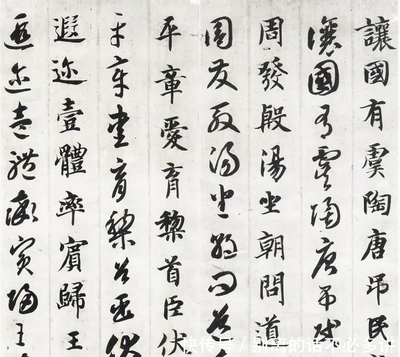 讓國有虞陶唐吊民
讓國有虞陶唐吊民
周發殷湯坐朝問道
周發殷湯坐朝問道
平章愛育黎首臣伏
平章愛育黎首臣伏
遐邇壹體率賓歸王
遐邇壹體率賓歸王
快传号/